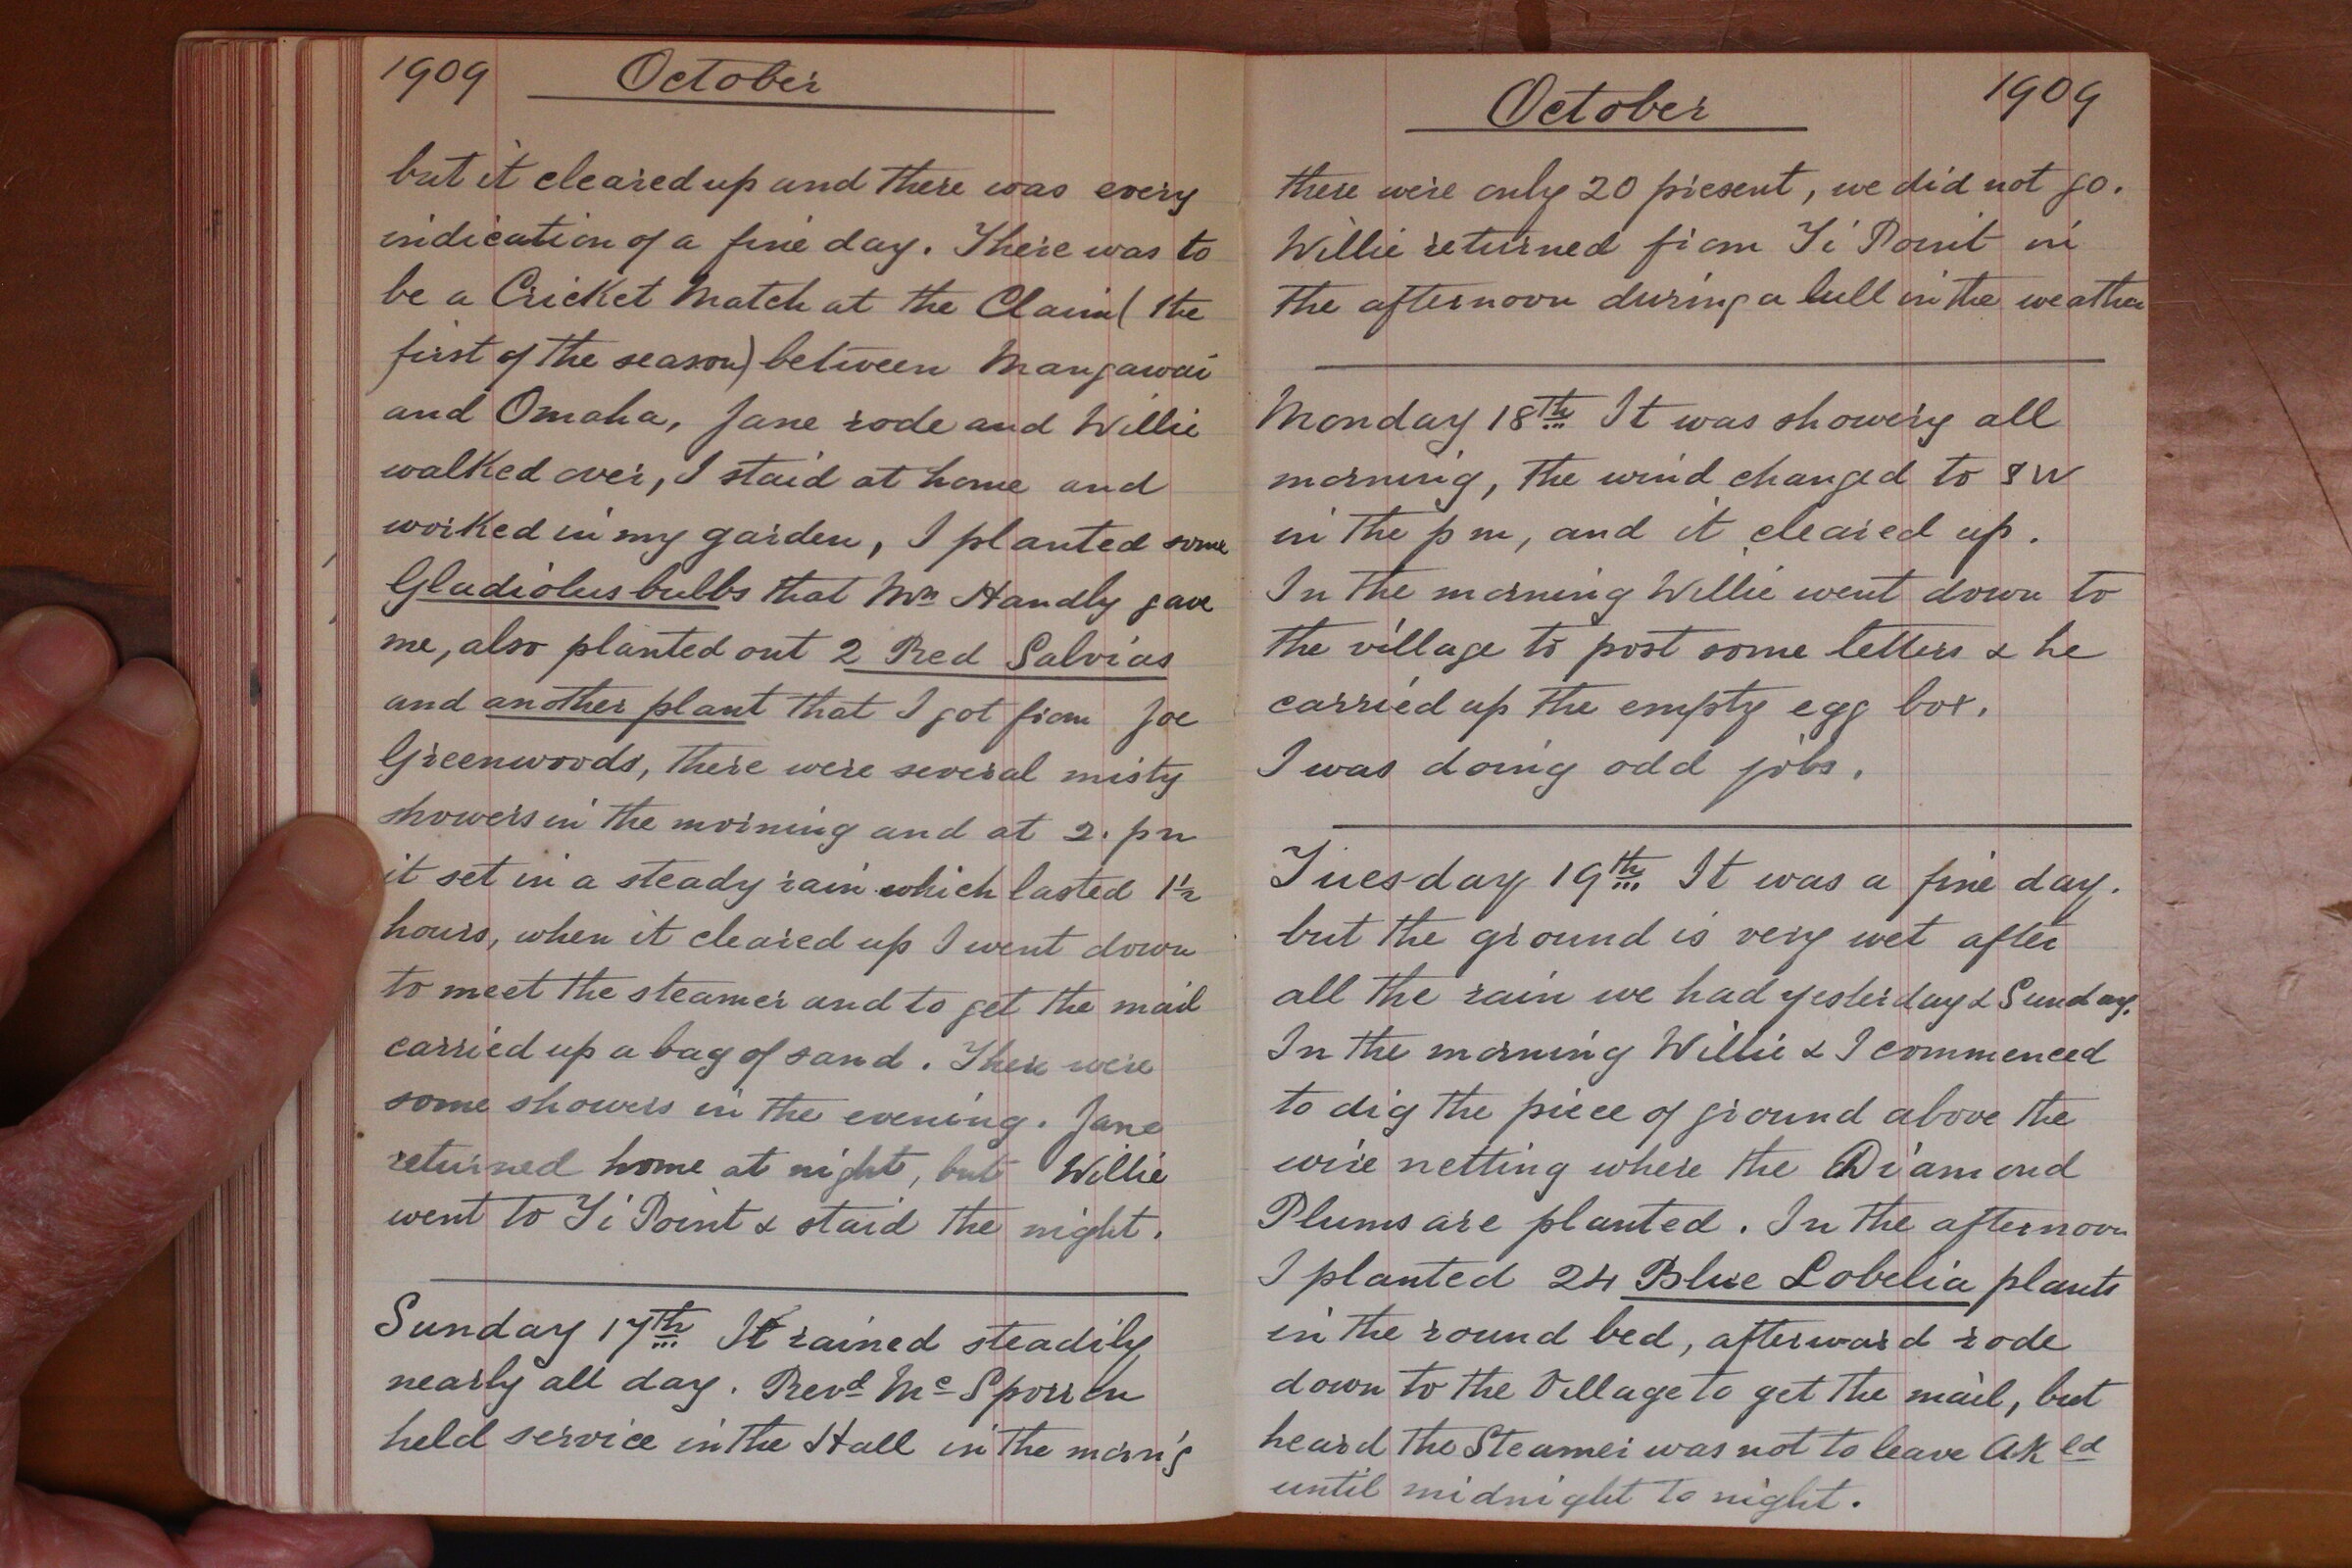 1909 October
but it cleared up and there was every
indication of a fine day. There was to
be a Cricket Match at the Claim (the
first of the season) between Mangawai
and Omaha, Jane rode and Willie
walked over, I staid at home and
worked in my garden, I planted some
Gladiolus bulbs that Mrs Handly gave
me, also planted out 2 Red Salvias
and another plant that I got from Joe
Greenwoods, there were several misty
showers in the morning and at 2. pm
it set in a steady rain which lasted 1½
hours, when it cleared up I went down
to meet the steamer and to get the mail
carried up a bag of sand. There were
some showers in the evening. Jane
returned home at night, but Willie
went to Ti Point & staid the night.
Sunday 17th It rained steadily
nearly all day. Revd McSporran
held service in the Hall in the morn'g
October 1909
there were only 20 present, we did not go.
Willie returned from Ti Point in
the afternoon during a lull in the weather
Monday 18th It was showery all
morning, the wind changed to SW
in the pm, and it cleared up.
In the morning Willie went down to
the village to post some letters & he
carried up the empty egg box.
I was doing odd jobs.
Tuesday 19th It was a fine day.
but the ground is very wet after
all the rain we had yesterday & Sunday.
In the morning Willie & I commenced
to dig the piece of ground above the
wire netting where the Diamond
Plums are planted. In the afternoon
I planted 24 Blue Lobelia plants
in the round bed, afterward rode
down to the Village to get the mail, but
heard the Steamer was not to leave Akld
until midnight to night.